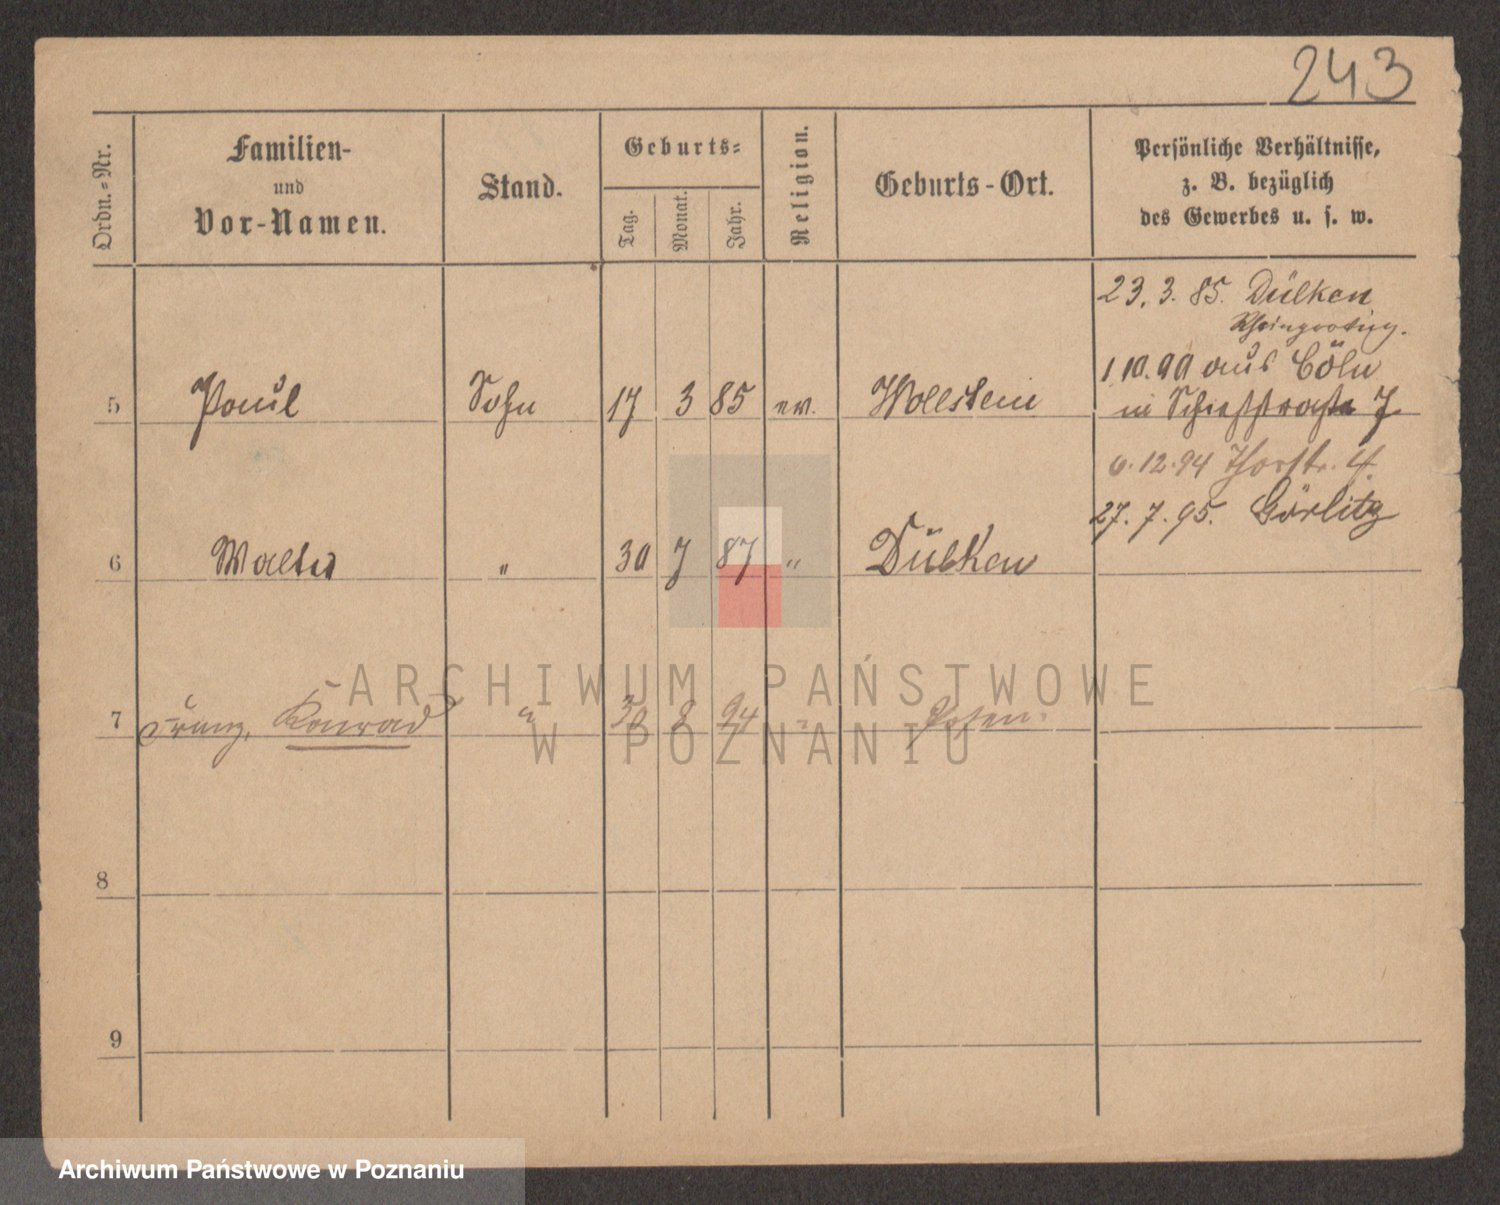 243
Ordn.-Nr.
Familien-
und
Vor-Namen.
Stand.
Geburts-
Tag.
Monat.
Jahr.
Religion.
Geburts-Ort.
Persönliche Verhältnisse,
z. B. bezüglich
des Gewerbes u. s. w.
23. 3. 85. Dülken
Rheinprovinz.
1.10.90 aus Cöln
5 Paul Sohn 17 3 85 ev. Wollstein in 7
6.12.94 Thorstr. 4.
27. 7. 95. Görlitz
6 Walter " 30 7 87 " Dülken
7 Franz, Konrad " 30 8 94 " Posen.
8
9
ARCHIWUM PAŃSTWOWE
W POZNANIU
Archiwum Państwowe w Poznaniu